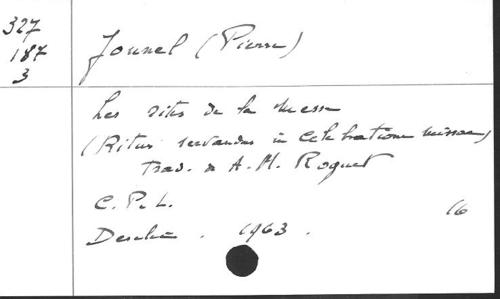 327
187
3
Jounel (Pierre)
Les rites de la messe
(Ritus servandus in celebratione missae)
Trad. de A.-M. Roguet
C.P.L.
16
Desclée. 1963.